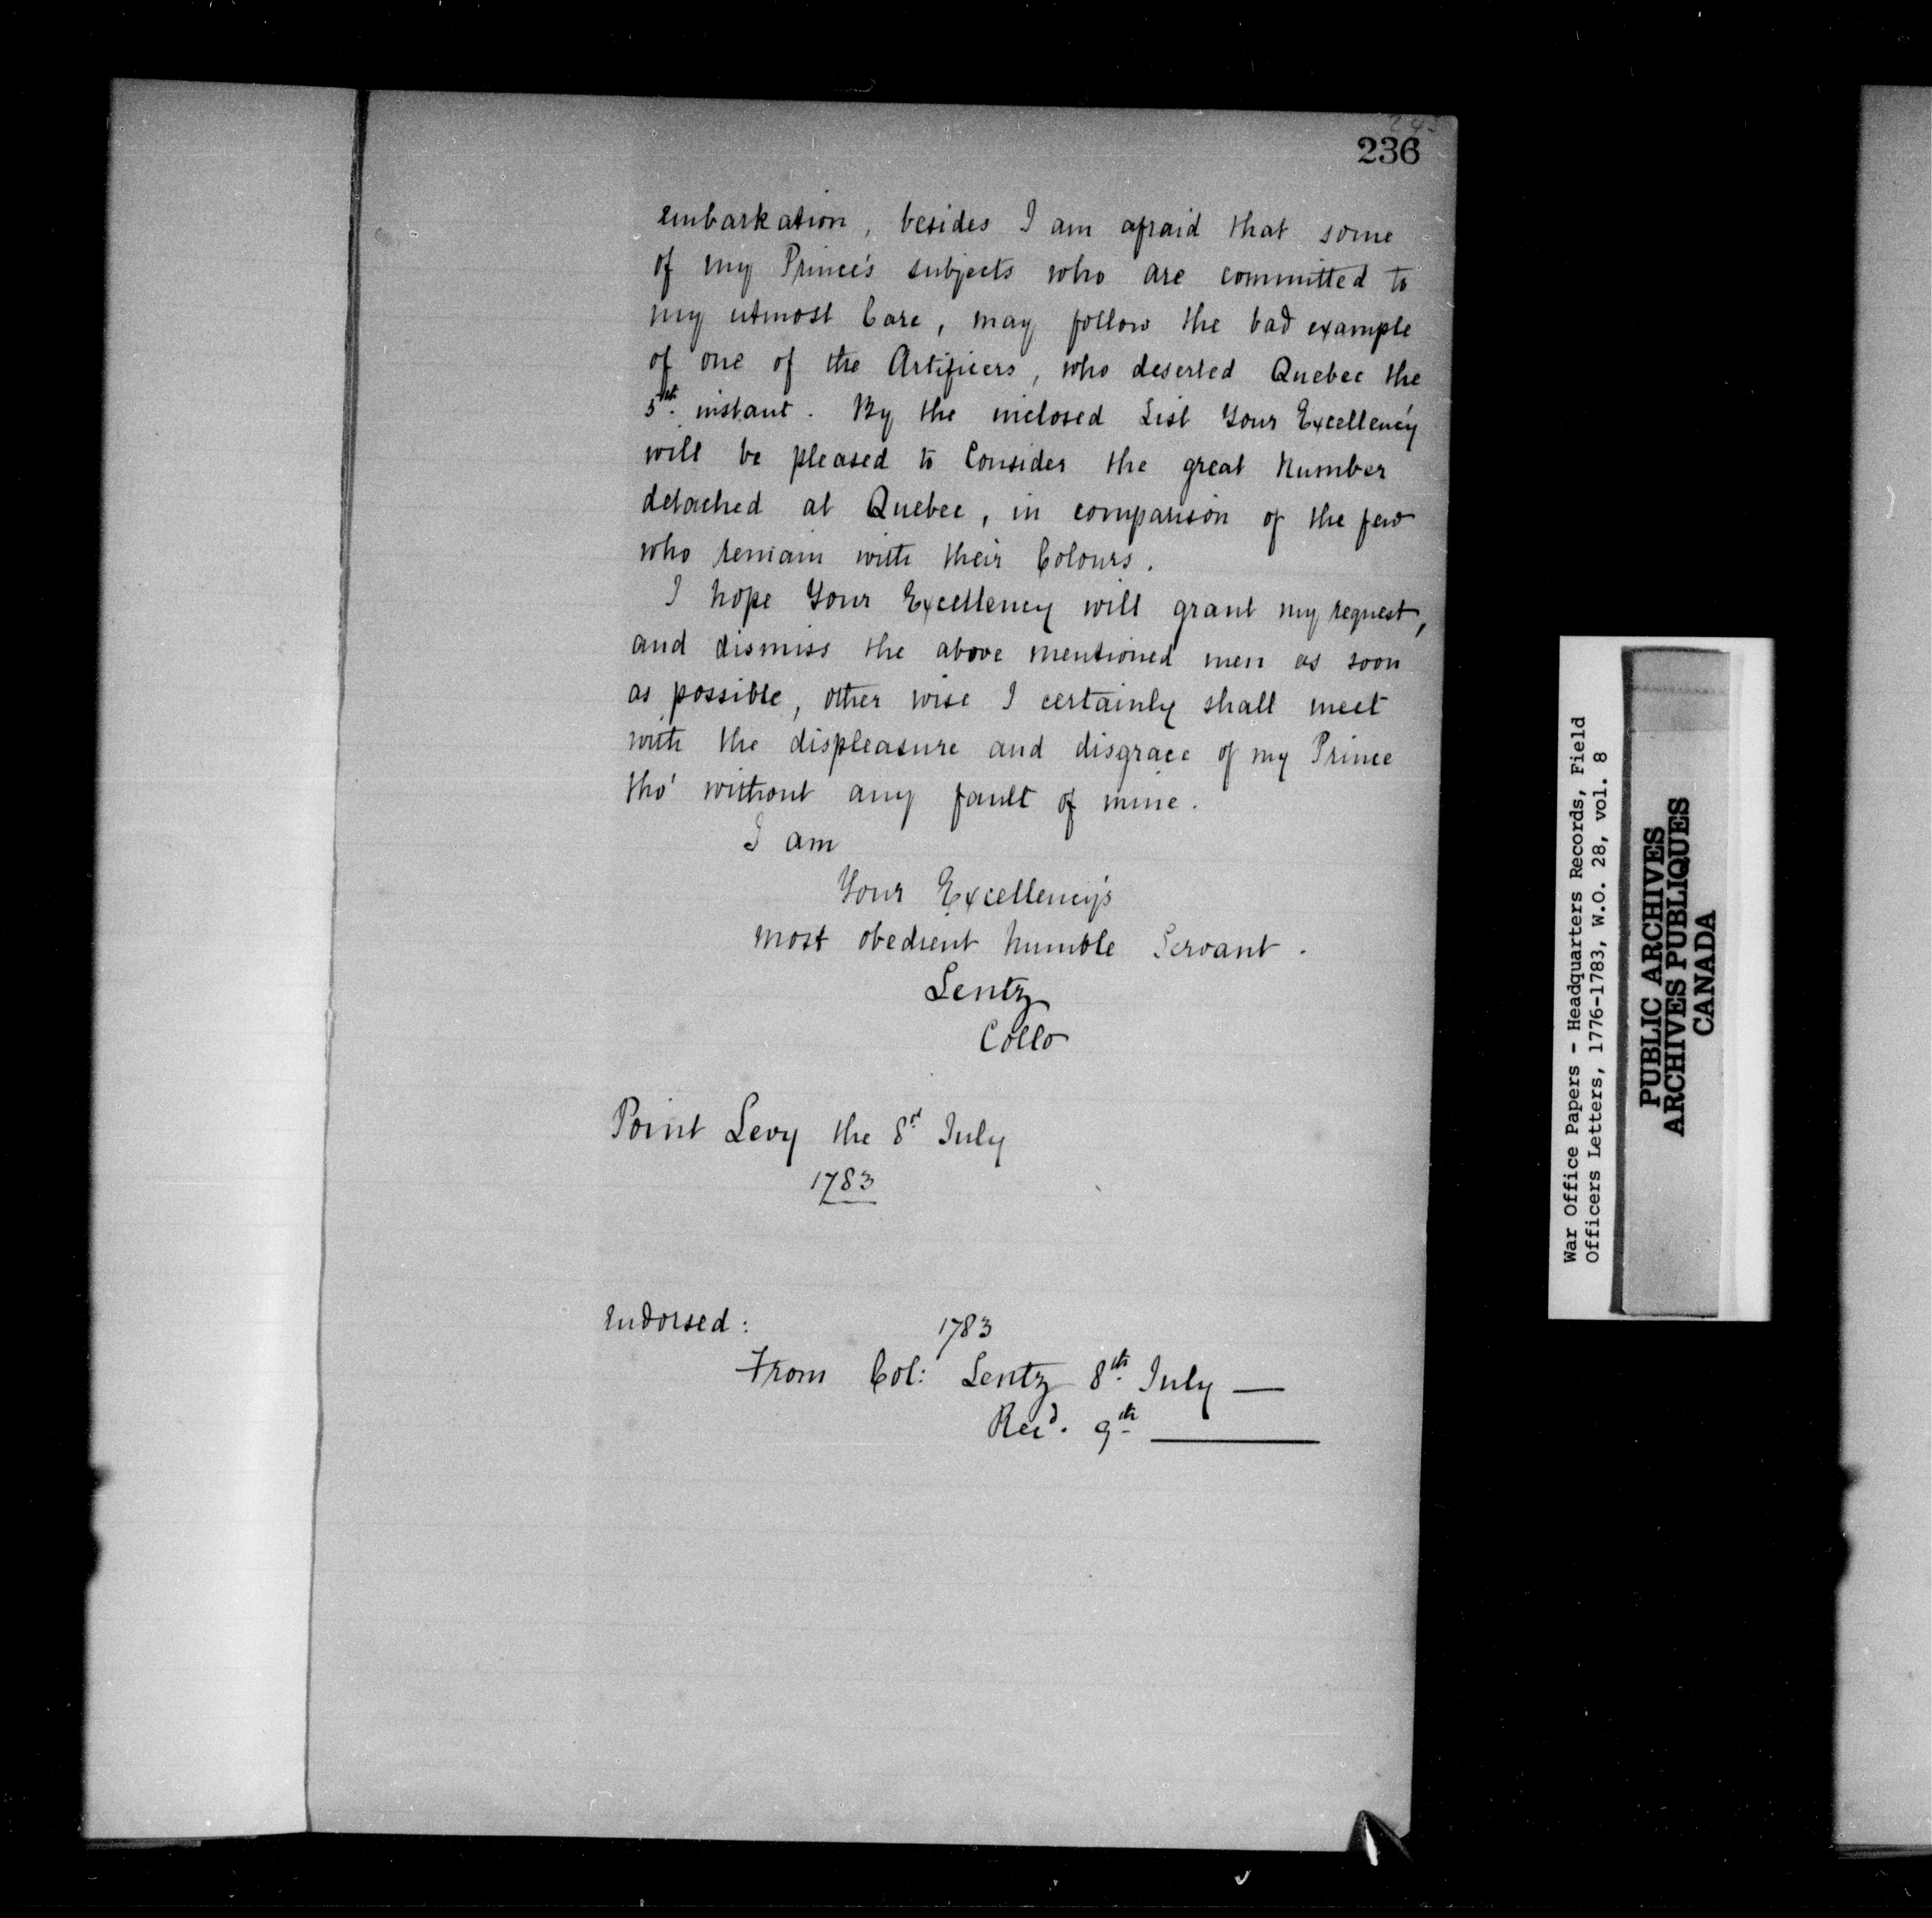 236
embarkation, besides I am afraid that some
of my Prince's subjects who are committed to
my utmost Care, may follow the bad example
of one of the Artificers, who deserted Quebec the
5th. instant. By the inclosed List Your Excellency
will be pleased to Consider the great Number
detached at Quebec, in comparison of the few
who remain with their Colours.
I hope Your Excellency will grant my request,
and dismiss the above mentioned men as soon
as possible, other wise I certainly shall meet
with the displeasure and disgrace of my Prince
tho' without any fault of mine.
I am
Your Excellency's
most obedient humble Servant.
Lentz
Collo
Point Levy the 8d July
1783
Endorsed:
1783
From Col: Lentz 8th. July —
Recd. 9th —
War Office Papers - Headquarters Records, Field
Officers Letters, 1776-1783, W.O. 28, vol. 8
PUBLIC ARCHIVES
ARCHIVES PUBLIQUES
CANADA